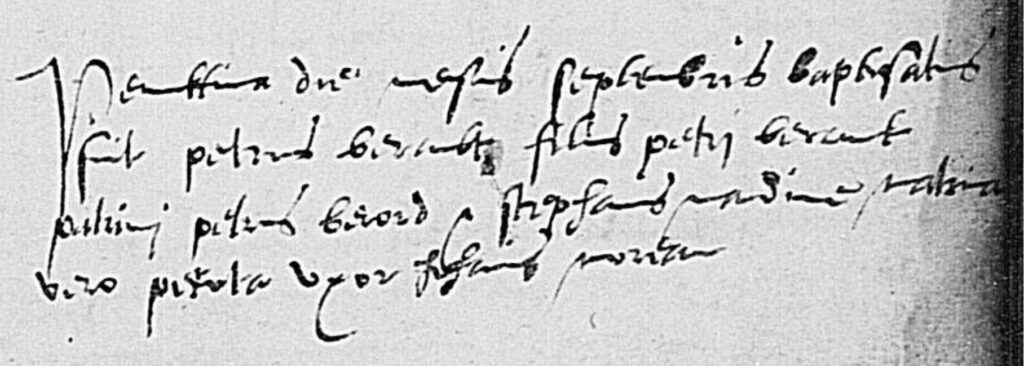 Penultima die mensis septembris baptisatus
fuit petrus berault filius petri berault
patrini petrus berord & stephanus nadine matrina
vero petrota uxor stephani moreau